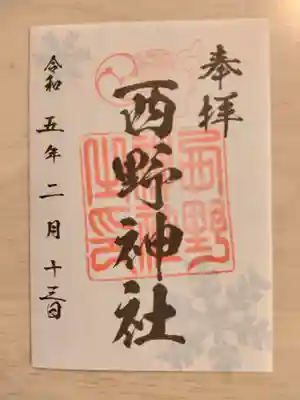 奉拝
西野神社
西野神社之印
令和五年二月十三日